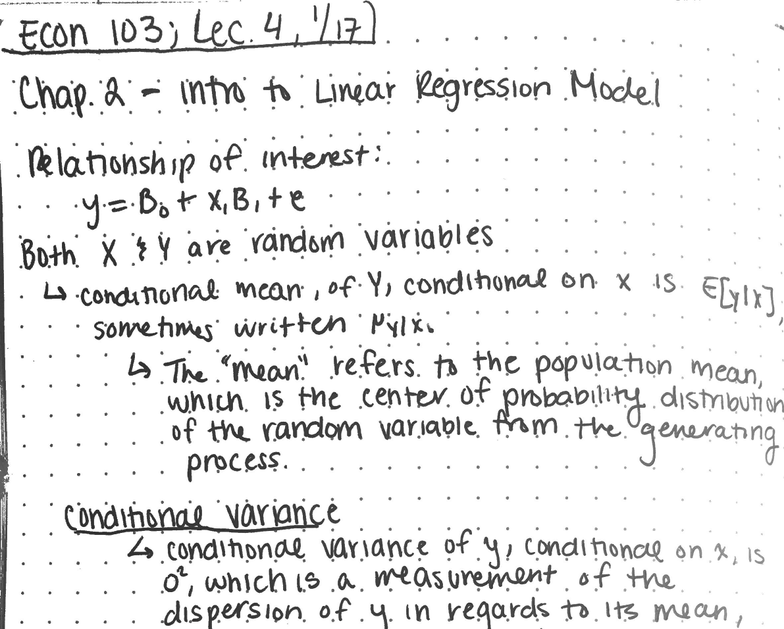 Econ 103; Lec. 4, 1/17
Chap. 2 - Intro to Linear Regression Model
Relationship of interest:
y = B₀ + X₁B₁ + e
Both X & Y are random variables
↳ conditional mean, of Y, conditional on x is E[y|x],
sometimes written μy|x.
↳ The "mean" refers to the population mean,
which is the center of probability distribution
of the random variable from the generating
process.
Conditional Variance
↳ conditional variance of y, conditional on x, is
σ², which is a measurement of the
dispersion of y in regards to its mean,